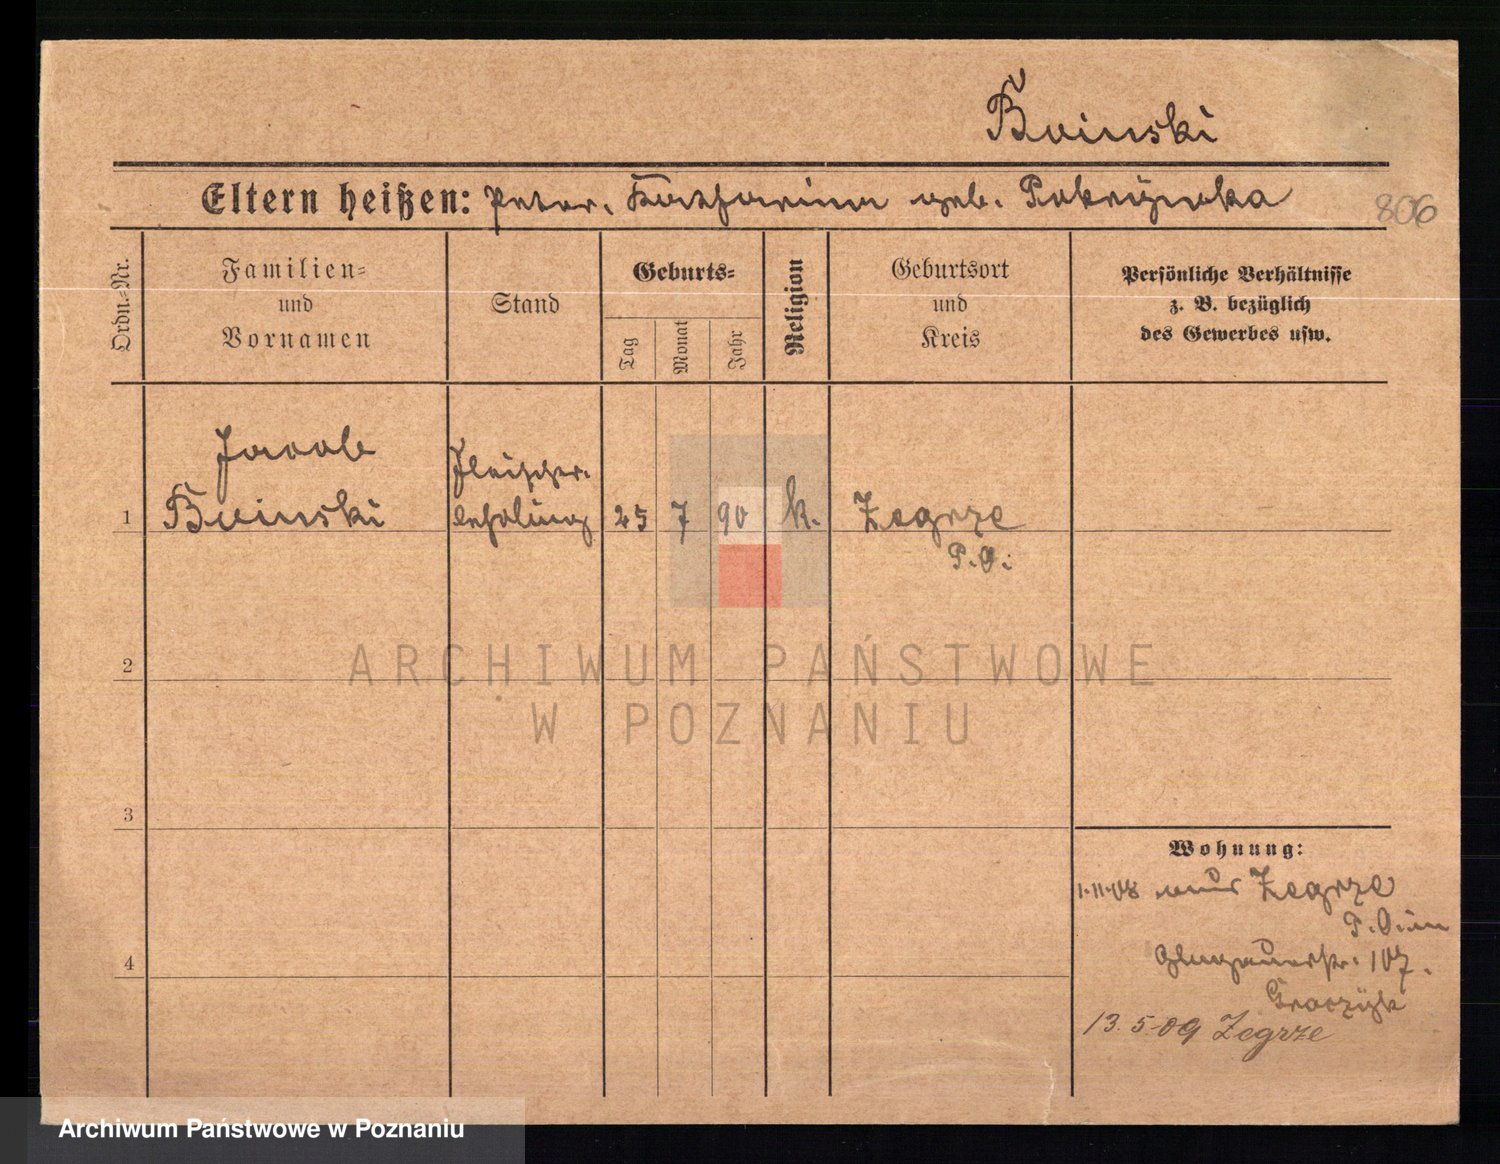 Buinski
Eltern heißen: Peter. Katharina geb. Pokrzywka
806
Ordn.-Nr.
Familien-
und
Vornamen
Stand
Geburts-
Tag
Monat
Jahr
Religion
Geburtsort
und
Kreis
Persönliche Verhältnisse
z. B. bezüglich
des Gewerbes usw.
1
Jacob
Buinski
Fleischer-
lehrling
25 7 90 k.
Zegrze
P.O.
2
3
4
Wohnung:
1.11.08 aus Zegrze
P.O. in
Glogauerstr. 107.
Graczyk
13.5.09 Zegrze
ARCHIWUM PAŃSTWOWE
W POZNANIU
Archiwum Państwowe w Poznaniu